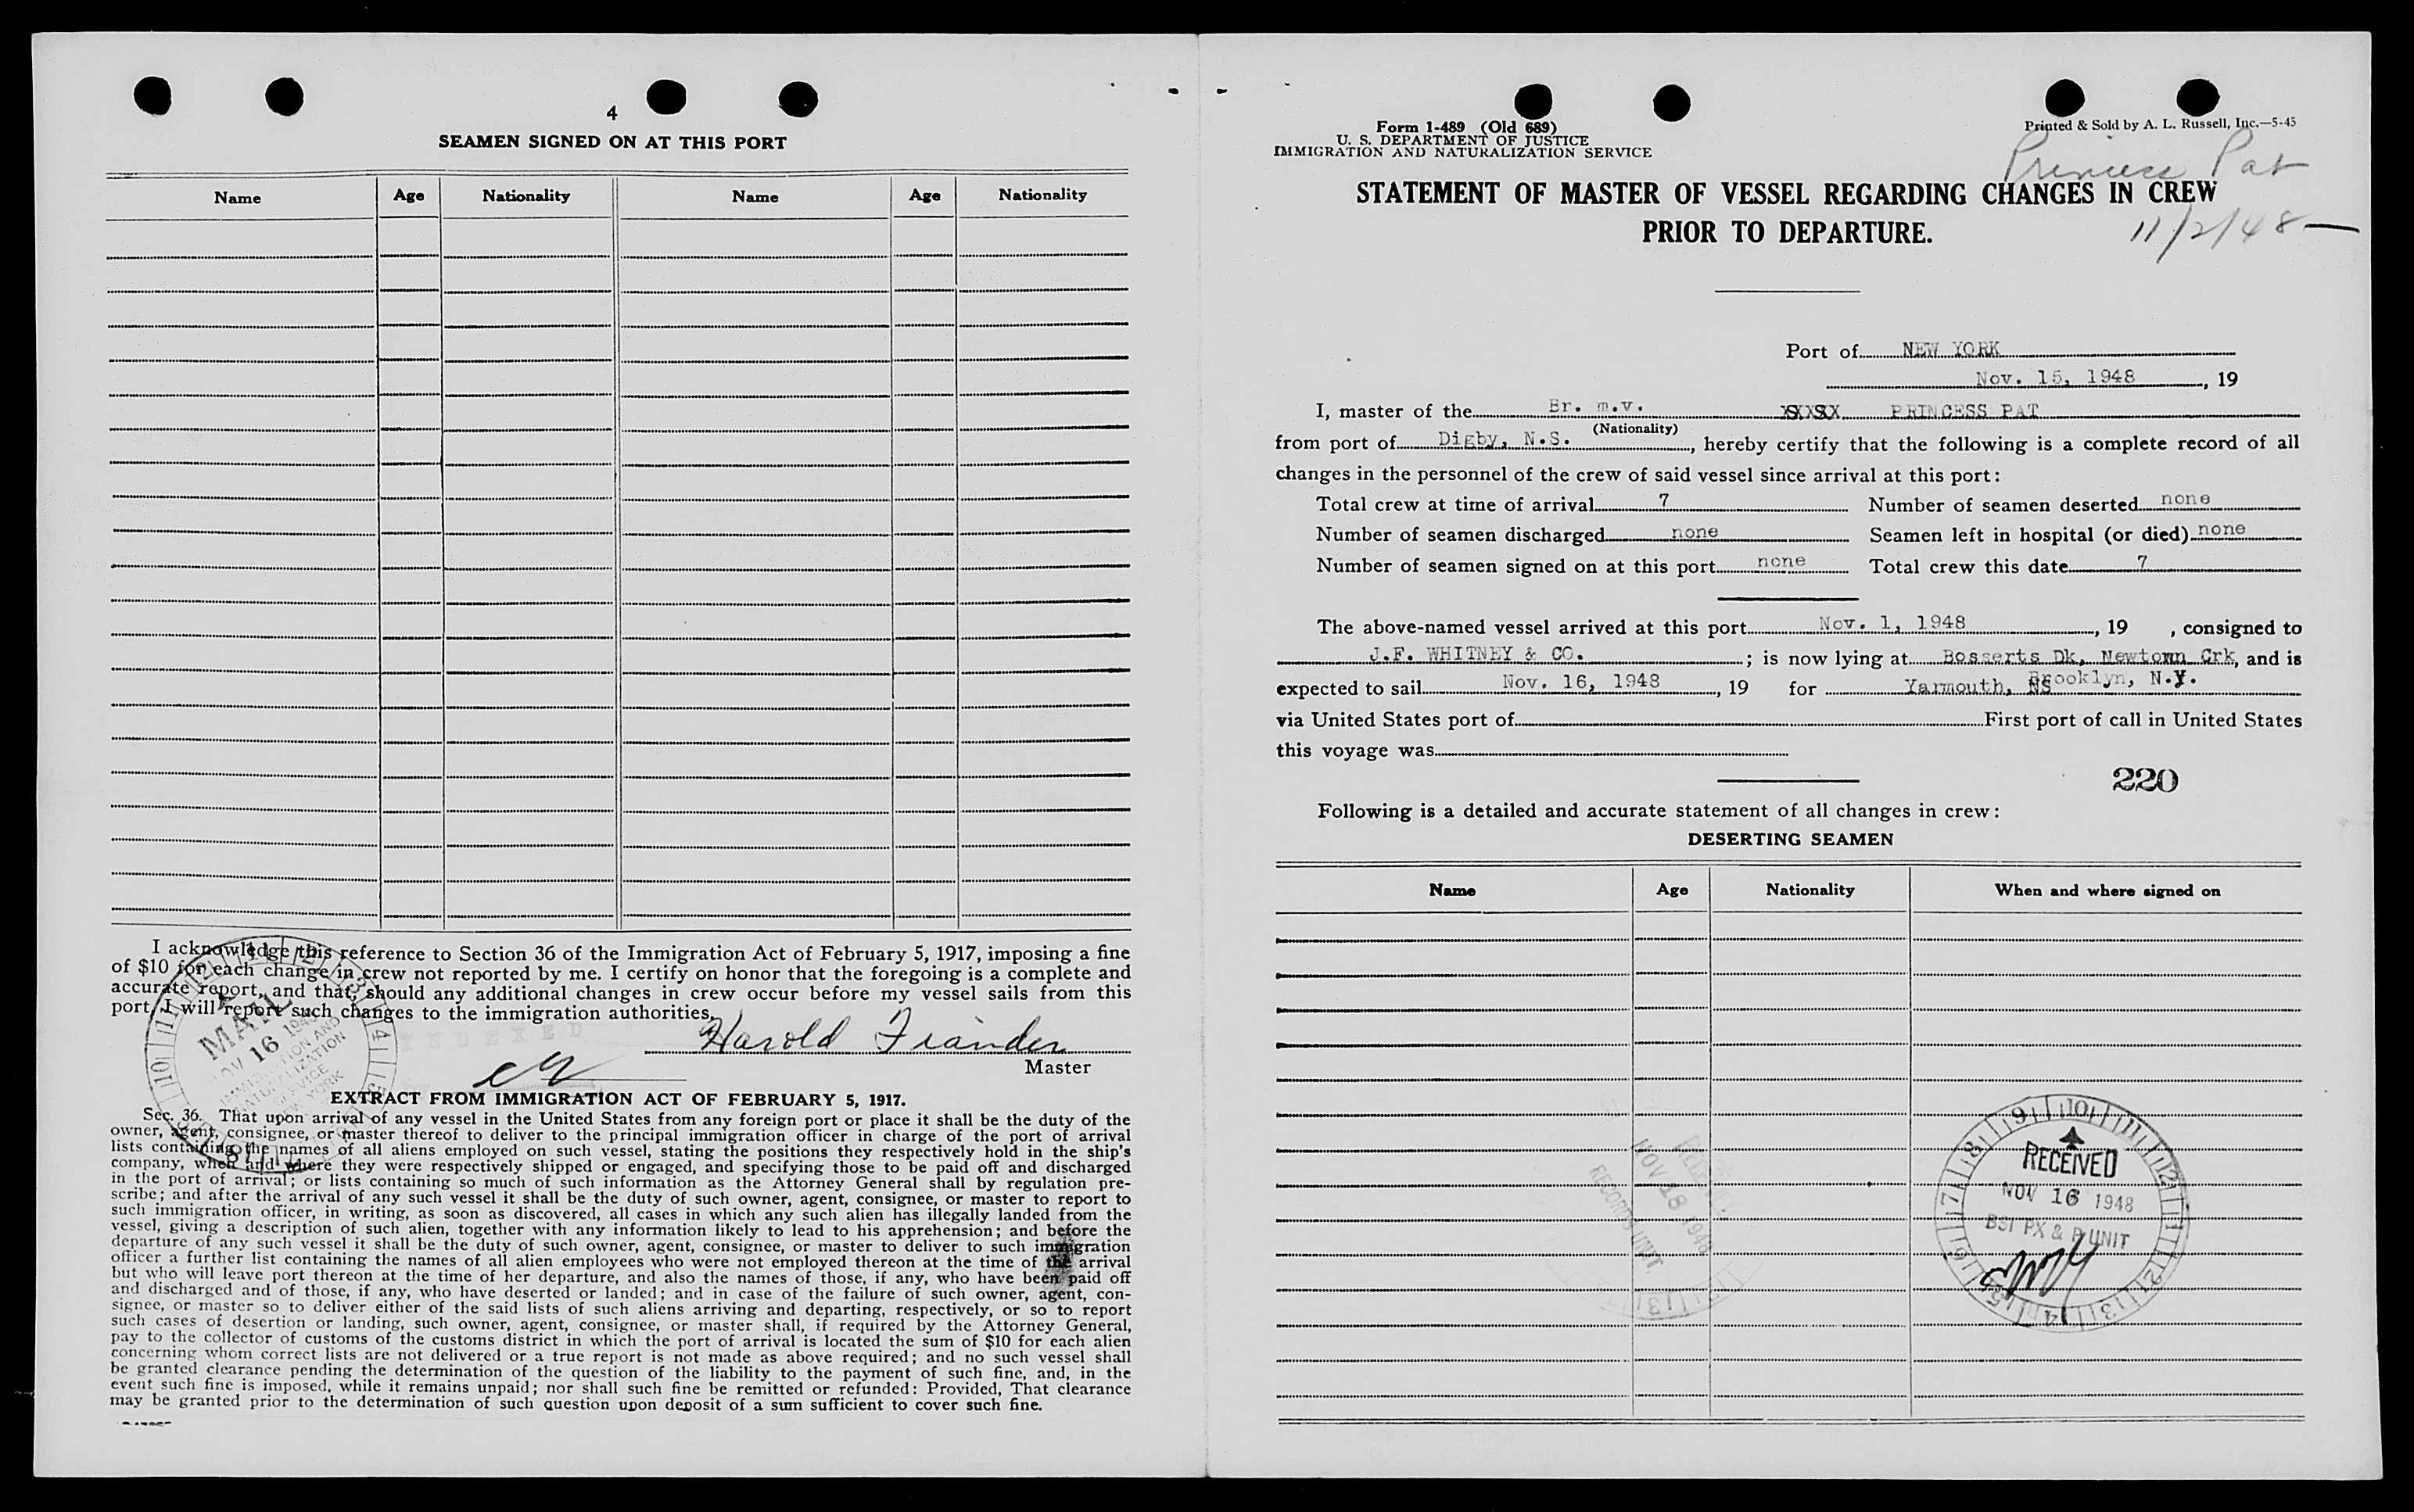 4
SEAMEN SIGNED ON AT THIS PORT
Name Age Nationality Name Age Nationality
I acknowledge this reference to Section 36 of the Immigration Act of February 5, 1917, imposing a fine
of $10 for each change in crew not reported by me. I certify on honor that the foregoing is a complete and
accurate report, and that, should any additional changes in crew occur before my vessel sails from this
port, I will report such changes to the immigration authorities.
INDEXED
Harold
Master
MAIL
NOV 16 194
EXTRACT FROM IMMIGRATION ACT OF FEBRUARY 5, 1917.
Sec. 36. That upon arrival of any vessel in the United States from any foreign port or place it shall be the duty of the
owner, agent, consignee, or master thereof to deliver to the principal immigration officer in charge of the port of arrival
lists containing the names of all aliens employed on such vessel, stating the positions they respectively hold in the ship's
company, when and where they were respectively shipped or engaged, and specifying those to be paid off and discharged
in the port of arrival; or lists containing so much of such information as the Attorney General shall by regulation pre-
scribe; and after the arrival of any such vessel it shall be the duty of such owner, agent, consignee, or master to report to
such immigration officer, in writing, as soon as discovered, all cases in which any such alien has illegally landed from the
vessel, giving a description of such alien, together with any information likely to lead to his apprehension; and before the
departure of any such vessel it shall be the duty of such owner, agent, consignee, or master to deliver to such immigration
officer a further list containing the names of all alien employees who were not employed thereon at the time of the arrival
but who will leave port thereon at the time of her departure, and also the names of those, if any, who have been paid off
and discharged and of those, if any, who have deserted or landed; and in case of the failure of such owner, agent, con-
signee, or master so to deliver either of the said lists of such aliens arriving and departing, respectively, or so to report
such cases of desertion or landing, such owner, agent, consignee, or master shall, if required by the Attorney General,
pay to the collector of customs of the customs district in which the port of arrival is located the sum of $10 for each alien
concerning whom correct lists are not delivered or a true report is not made as above required; and no such vessel shall
be granted clearance pending the determination of the question of the liability to the payment of such fine, and, in the
event such fine is imposed, while it remains unpaid; nor shall such fine be remitted or refunded: Provided, That clearance
may be granted prior to the determination of such question upon deposit of a sum sufficient to cover such fine.
Form 1-489 (Old 689)
U. S. DEPARTMENT OF JUSTICE
IMMIGRATION AND NATURALIZATION SERVICE
Printed & Sold by A. L. Russell, Inc.—5-45
Princess Pat
STATEMENT OF MASTER OF VESSEL REGARDING CHANGES IN CREW
PRIOR TO DEPARTURE.
11/2/48 —
Port of NEW YORK
Nov. 15, 1948, 19
I, master of the Br. m.v. PRINCESS PAT
(Nationality)
from port of Digby, N.S., hereby certify that the following is a complete record of all
changes in the personnel of the crew of said vessel since arrival at this port:
Total crew at time of arrival 7 Number of seamen deserted none
Number of seamen discharged none Seamen left in hospital (or died) none
Number of seamen signed on at this port none Total crew this date 7
The above-named vessel arrived at this port Nov. 1, 1948, 19 , consigned to
J.F. WHITNEY & CO.; is now lying at Bosserts Dk, Newtown Crk, and is
Brooklyn, N.Y.
expected to sail Nov. 16, 1948, 19 for Yarmouth, NS
via United States port of First port of call in United States
this voyage was
220
Following is a detailed and accurate statement of all changes in crew:
DESERTING SEAMEN
Name Age Nationality When and where signed on
NOV 18 1948
RECORDS UNIT
RECEIVED
NOV 16 1948
BSI PX & P UNIT